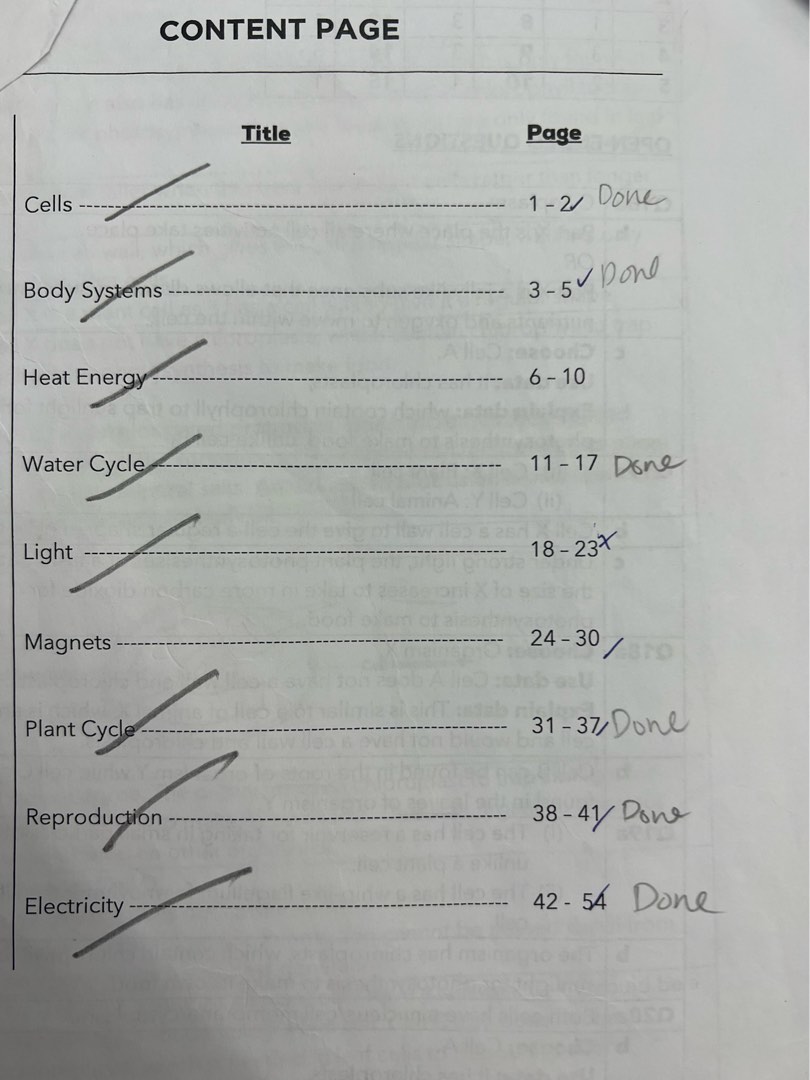 CONTENT PAGE
Title Page
Cells ------------------------------ 1 - 2 Done
Body Systems ------------------------------ 3 - 5 ✓ Done
Heat Energy ------------------------------ 6 - 10
Water Cycle ------------------------------ 11 - 17 Done
Light ------------------------------ 18 - 23 x
Magnets ------------------------------ 24 - 30
Plant Cycle ------------------------------ 31 - 37 Done
Reproduction ------------------------------ 38 - 41 Done
Electricity ------------------------------ 42 - 54 Done